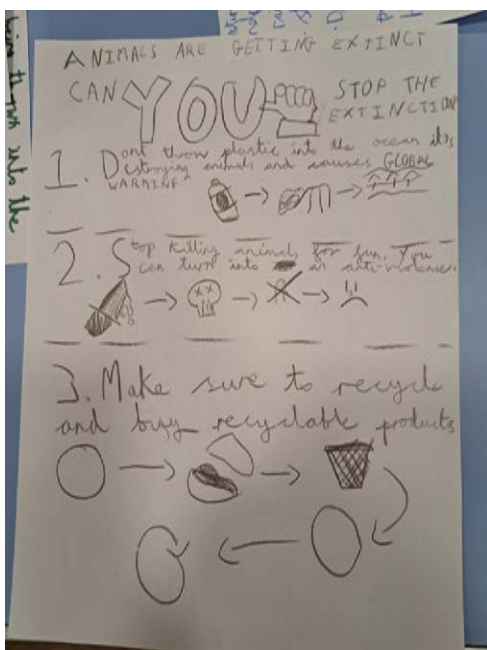 ANIMALS ARE GETTING EXTINCT
CAN YOU STOP THE
EXTINCTION
1. Dont throw plastic into the ocean its
Destroying animals and causes GLOBAL
WARMING
2. Stop killing animals for fun. You
can turn into an anti-violence.
3. Make sure to recycle
and buy recyclable products
into the